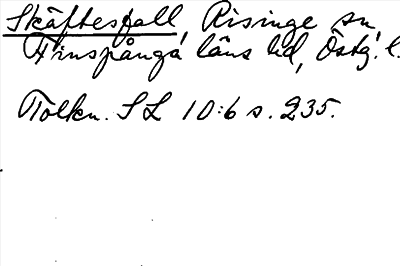 Skäftesfall, Risinge sn,
Finspånga läns hd, Östg. l.
Tolkn. SL 10:6 s. 235.